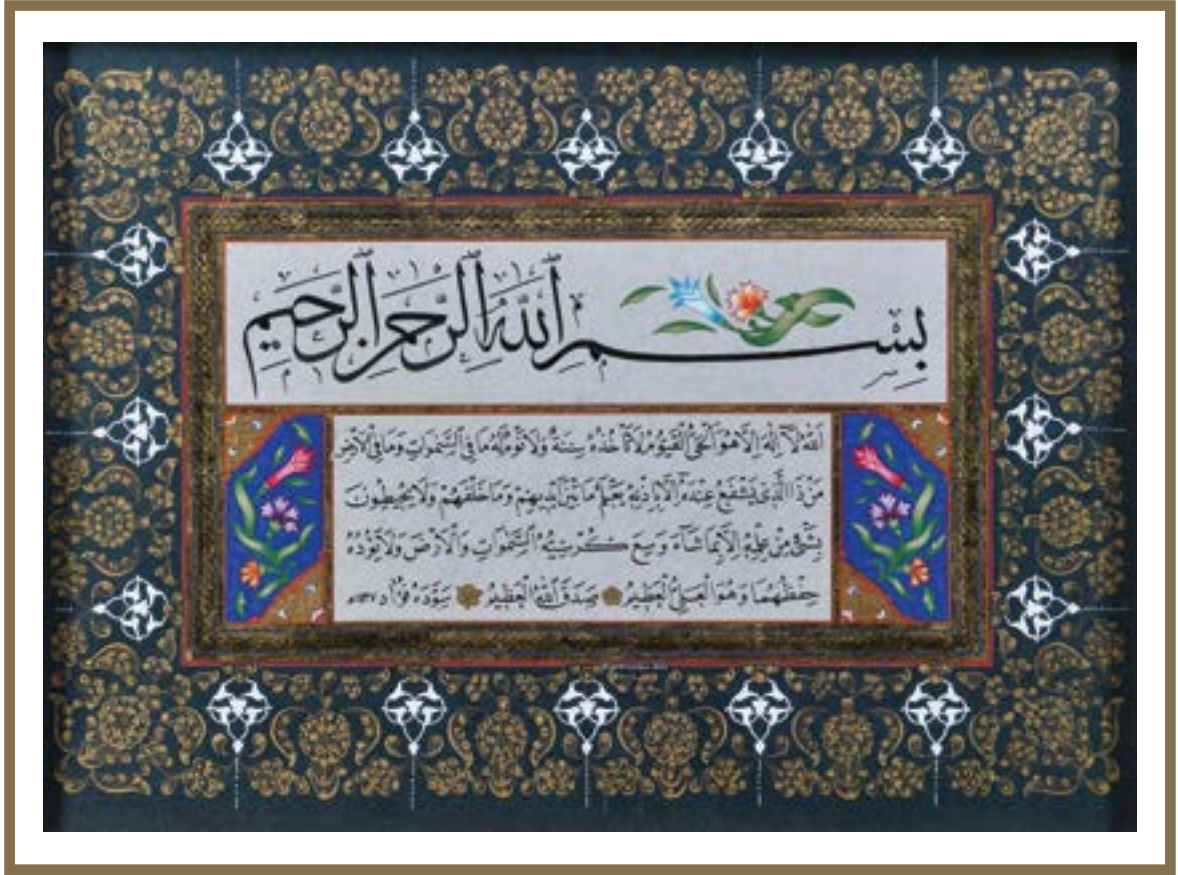 بِسْمِ اللّٰهِ الرَّحْمٰنِ الرَّحِيمِ
اَللّٰهُ لَآ اِلٰهَ اِلَّا هُوَ الْحَيُّ الْقَيُّومُ لَا تَأْخُذُهُ سِنَةٌ وَلَا نَوْمٌ لَهُ مَا فِي السَّمٰوَاتِ وَمَا فِي الْاَرْضِ
مَنْ ذَا الَّذِي يَشْفَعُ عِنْدَهُ اِلَّا بِاِذْنِهِ يَعْلَمُ مَا بَيْنَ اَيْدِيهِمْ وَمَا خَلْفَهُمْ وَلَا يُحِيطُونَ
بِشَيْءٍ مِنْ عِلْمِهِ اِلَّا بِمَا شَآءَ وَسِعَ كُرْسِيُّهُ السَّمٰوَاتِ وَالْاَرْضَ وَلَا يَؤُدُهُ
حِفْظُهُمَا وَهُوَ الْعَلِيُّ الْعَظِيمُ صَدَقَ اللّٰهُ الْعَظِيمُ سَوَّدَهُ فؤاد